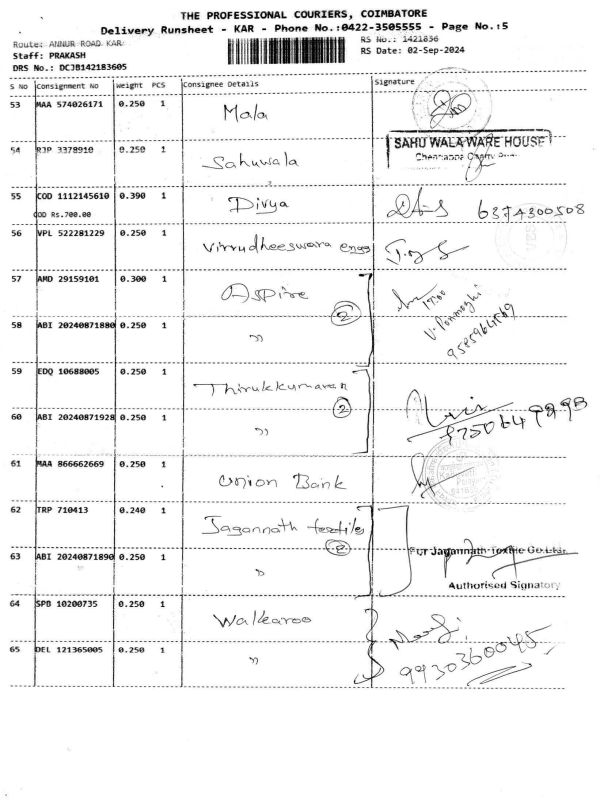 THE PROFESSIONAL COURIERS, COIMBATORE
Delivery Runsheet - KAR - Phone No.:0422-3505555 - Page No.:5
Route: ANNUR ROAD KAR
RS No.: 1421836
Staff: PRAKASH
RS Date: 02-Sep-2024
DRS No.: DCJB142183605
S No Consignment No Weight PCS Consignee Details Signature
53 MAA 574026171 0.250 1 Mala
54 RJP 3378910 0.250 1 Sahuwala SAHU WALA WARE HOUSE
55 COD 1112145610 0.390 1 Divya 6374300508
COD Rs.700.00
56 VPL 522281229 0.250 1 Virrudheeswara engg
57 AMD 29159101 0.300 1 Aspire 17:00
2 V. Ponmozhi
58 ABI 20240871880 0.250 1 " 9585964569
59 EDQ 10688005 0.250 1 Thirukkumaran
2
60 ABI 20240871928 0.250 1 "
61 MAA 866662669 0.250 1 Union Bank
62 TRP 710413 0.240 1 Jagannath textile
2 For Jagannath Textile Co.Ltd.
63 ABI 20240871890 0.250 1 "
Authorised Signatory
64 SPB 10200735 0.250 1 Walkaroo
65 DEL 121365005 0.250 1 " 9930360045